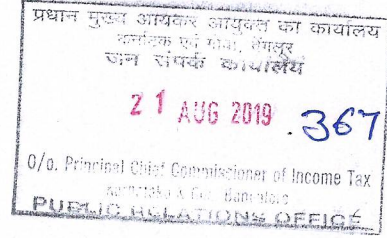 प्रधान मुख्य आयकर आयुक्त का कार्यालय
कर्नाटक एवं गोवा, बेंगलूर
जन संपर्क कार्यालय
21 AUG 2019 .367
O/o. Principal Chief Commissioner of Income Tax
Karnataka & Goa Bangalore
PUBLIC RELATIONS OFFICE